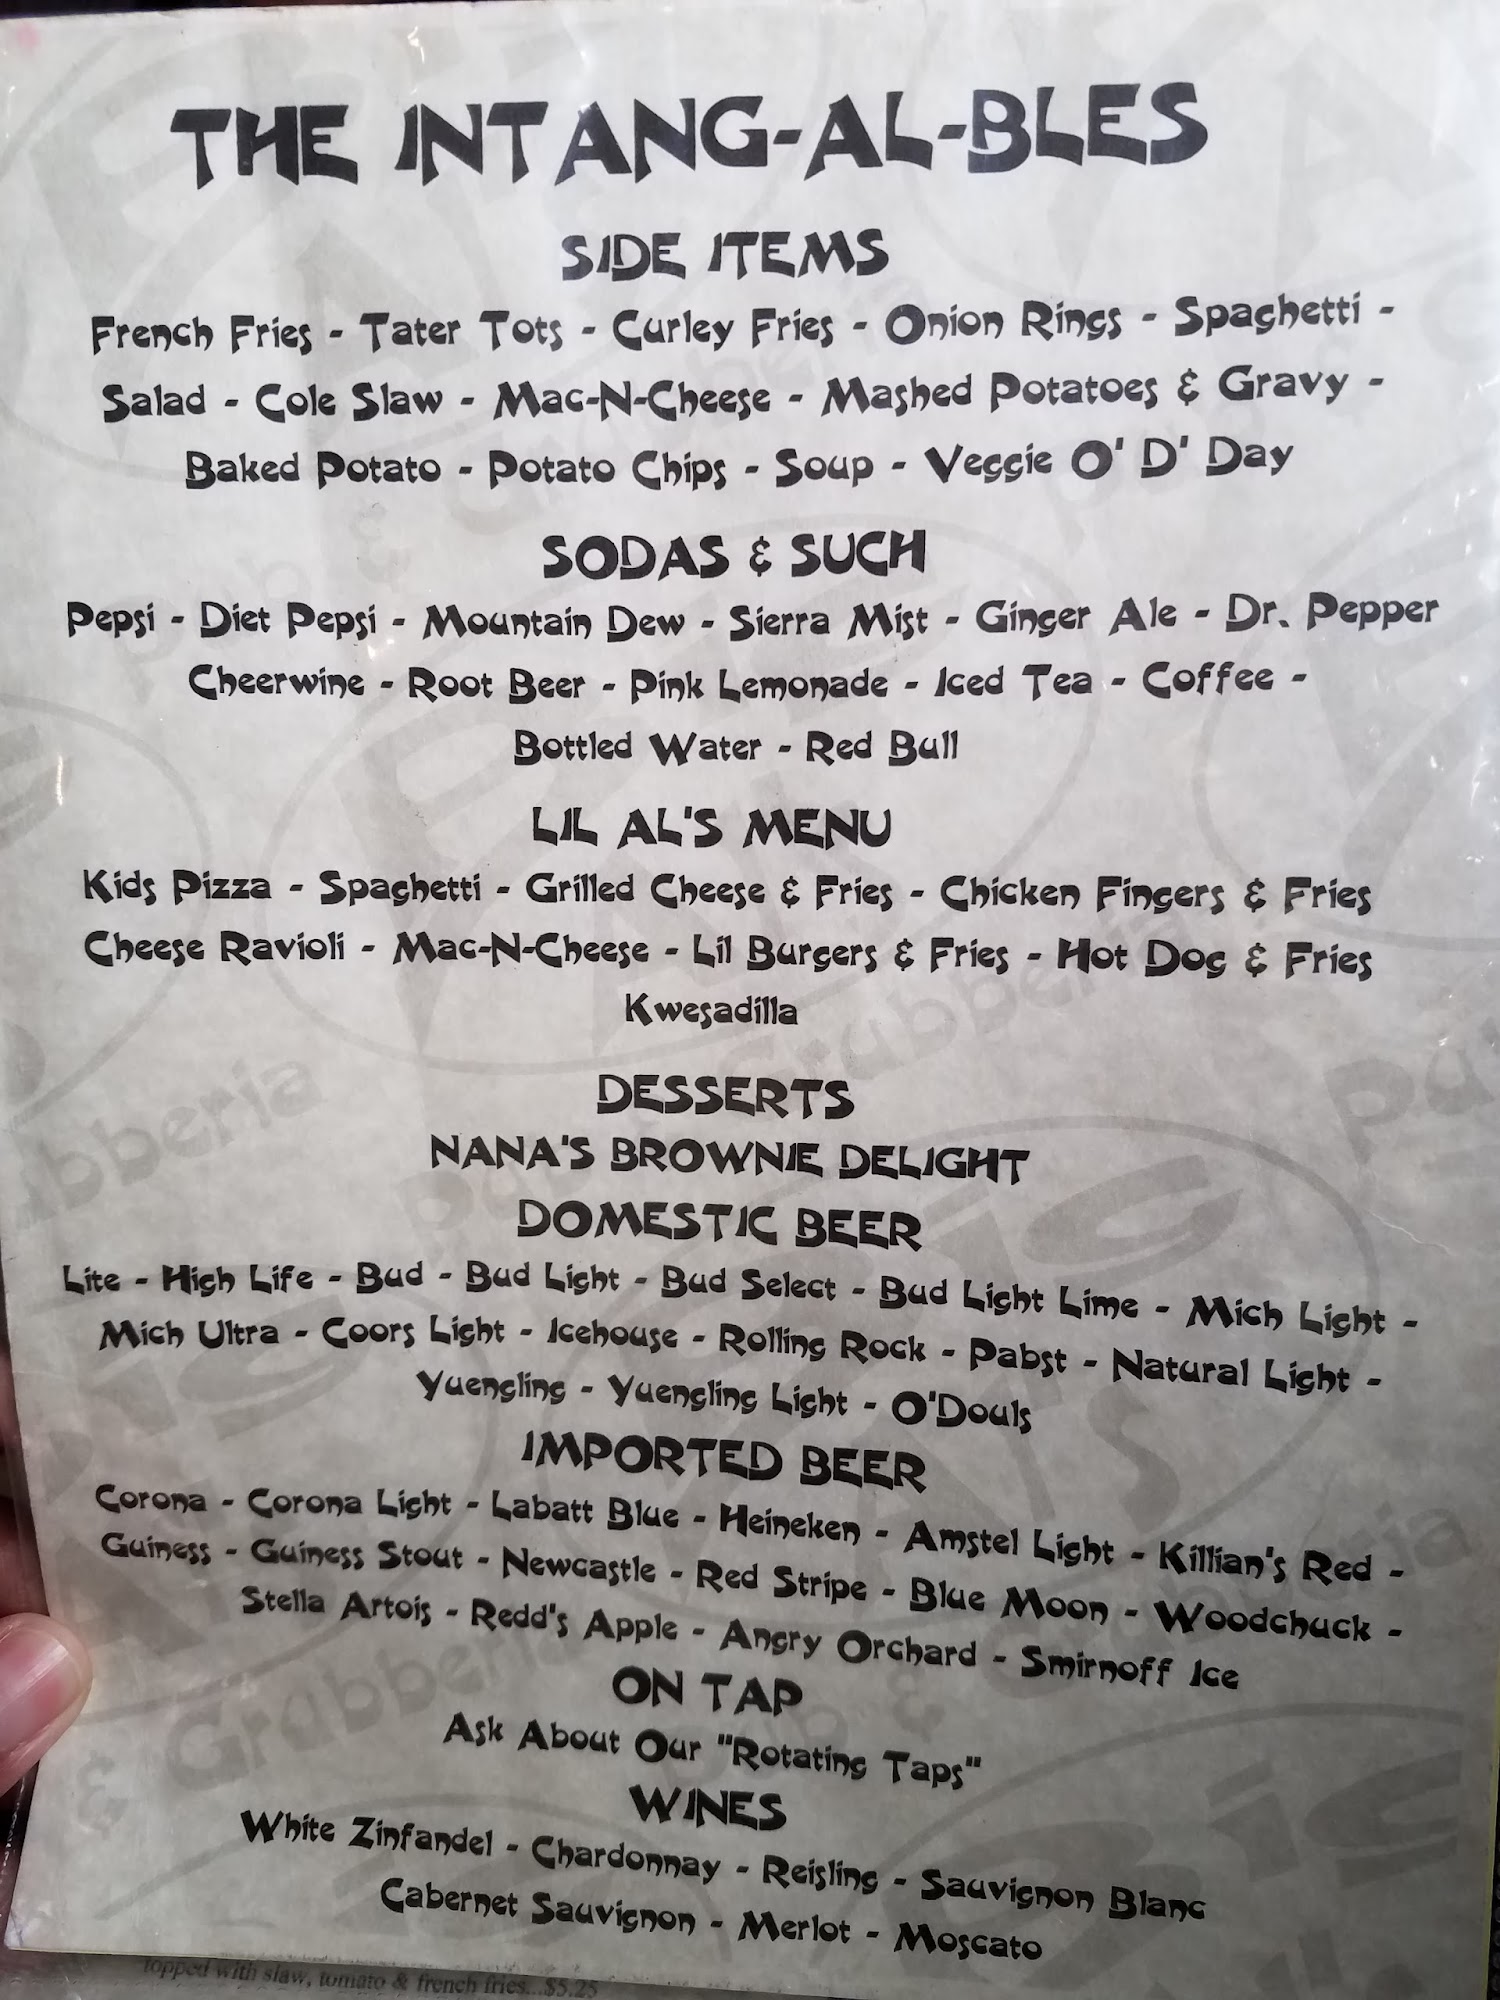 THE INTANG-AL-BLES
SIDE ITEMS
French Fries - Tater Tots - Curley Fries - Onion Rings - Spaghetti -
Salad - Cole Slaw - Mac-N-Cheese - Mashed Potatoes & Gravy -
Baked Potato - Potato Chips - Soup - Veggie O' D' Day
SODAS & SUCH
Pepsi - Diet Pepsi - Mountain Dew - Sierra Mist - Ginger Ale - Dr. Pepper
Cheerwine - Root Beer - Pink Lemonade - Iced Tea - Coffee -
Bottled Water - Red Bull
LIL AL'S MENU
Kids Pizza - Spaghetti - Grilled Cheese & Fries - Chicken Fingers & Fries
Cheese Ravioli - Mac-N-Cheese - Lil Burgers & Fries - Hot Dog & Fries
Kwesadilla
DESSERTS
NANA'S BROWNIE DELIGHT
DOMESTIC BEER
Lite - High Life - Bud - Bud Light - Bud Select - Bud Light Lime - Mich Light -
Mich Ultra - Coors Light - Icehouse - Rolling Rock - Pabst - Natural Light -
Yuengling - Yuengling Light - O'Douls
IMPORTED BEER
Corona - Corona Light - Labatt Blue - Heineken - Amstel Light - Killian's Red -
Guiness - Guiness Stout - Newcastle - Red Stripe - Blue Moon - Woodchuck -
Stella Artois - Redd's Apple - Angry Orchard - Smirnoff Ice
ON TAP
Ask About Our "Rotating Taps"
WINES
White Zinfandel - Chardonnay - Reisling - Sauvignon Blanc
Cabernet Sauvignon - Merlot - Moscato
topped with slaw, tomato & french fries...$5.25